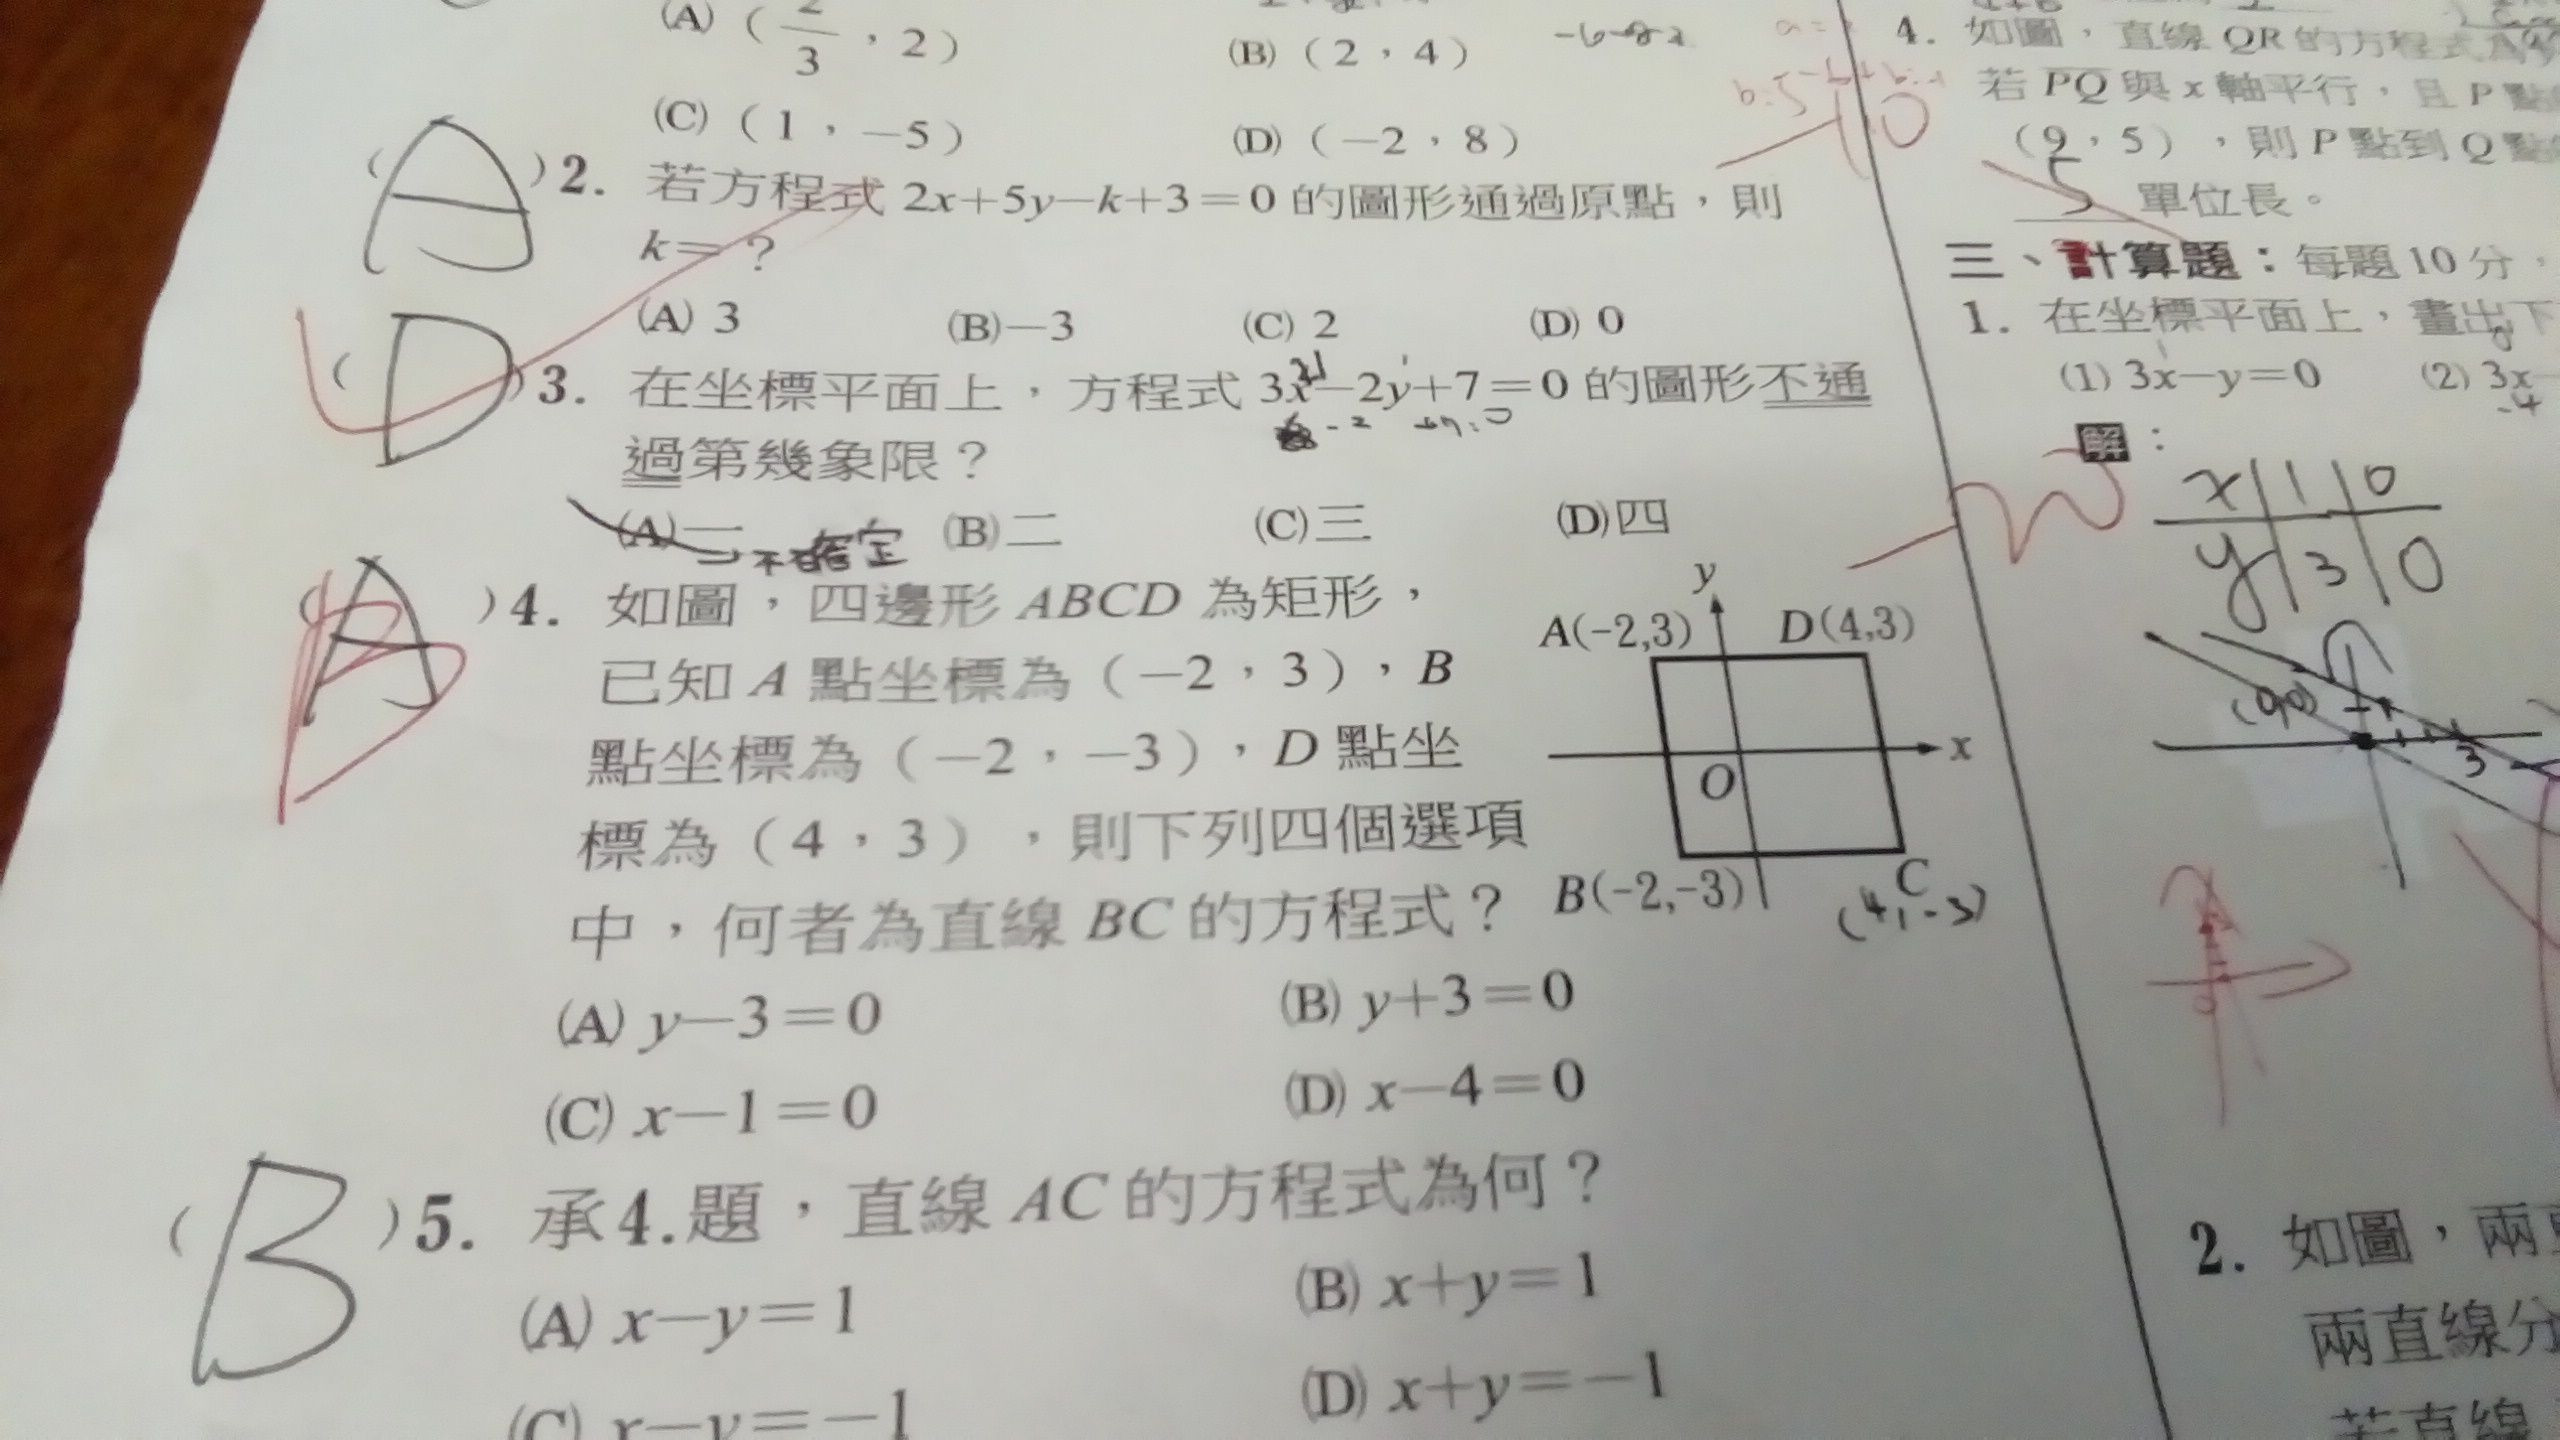 (A) ( 2/3 , 2 )
(B) ( 2 , 4 )
(C) ( 1 , −5 )
(D) ( −2 , 8 )
( A ) 2. 若方程式 2x+5y−k+3=0 的圖形通過原點,則
k=?
(A) 3 (B) −3 (C) 2 (D) 0
( D ) 3. 在坐標平面上,方程式 3x−2y+7=0 的圖形不通
過第幾象限?
(A) 一 (B) 二 (C) 三 (D) 四
不確定
( A ) 4. 如圖,四邊形 ABCD 為矩形,
B
已知 A 點坐標為(−2 , 3),B
點坐標為(−2 , −3),D 點坐
標為(4 , 3),則下列四個選項
中,何者為直線 BC 的方程式?
y
A(-2,3) D(4,3)
x
O
B(-2,-3) C
(4,-3)
(A) y−3=0 (B) y+3=0
(C) x−1=0 (D) x−4=0
( B ) 5. 承4.題,直線 AC 的方程式為何?
(A) x−y=1 (B) x+y=1
(C) x−y=−1 (D) x+y=−1
4. 如圖,直線 QR 的方程式為
若 PQ 與 x 軸平行,且 P 點
(9 , 5),則 P 點到 Q 點
5 單位長。
三、計算題:每題 10 分,
1. 在坐標平面上,畫出下
(1) 3x−y=0 (2) 3x
解:
x 1 0
y 3 0
(0,0)
3
2. 如圖,兩
兩直線分
若直線